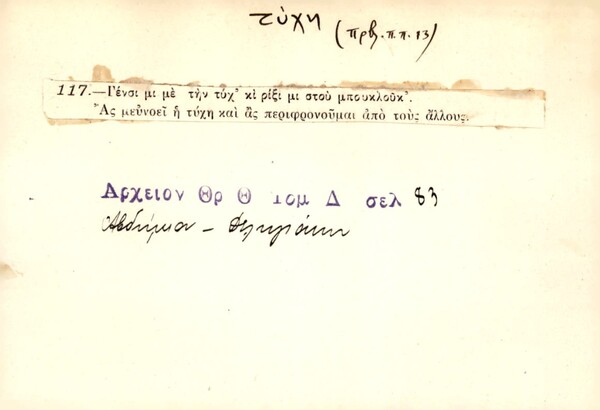 τύχη (πρβ. π.π. 13)
117.—Γένσι μι μὲ τὴν τύχ' κὶ ρίξι μι στοὺ μπουκλοὺκ'.
Ἂς μεὐνοεῖ ἡ τύχη καὶ ἂς περιφρονοῦμαι ἀπὸ τοὺς ἄλλους.
Αρχειον Θρ Θ Τομ Δ σελ 83
Αυδήμιον – Δεληγιάννη